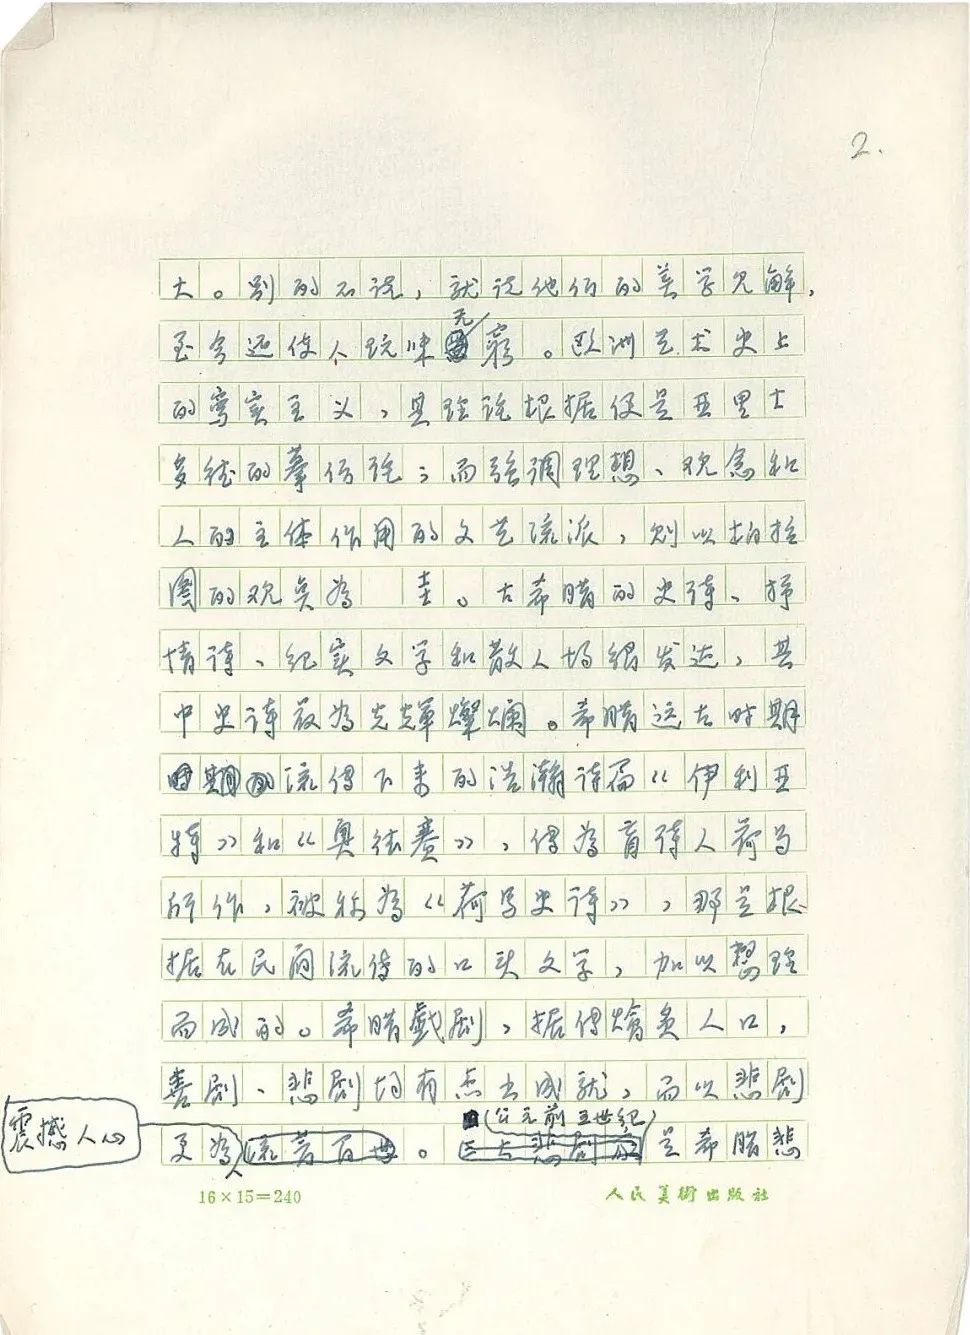 2.
大。别的不说，就说他们的美学见解，
至今还使人玩味无穷。欧洲艺术史上
的写实主义，其理论根据便是亚里士
多德的摹仿说；而强调理想、观念和
人的主体作用的文艺流派，则以柏拉
图的观点为 圭。古希腊的史诗、抒
情诗、纪实文学和散文均很发达，其
中史诗最为光辉灿烂。希腊远古时期
时期的流传下来的浩瀚诗篇《伊利亚
特》和《奥德赛》，传为盲诗人荷马
所作，被称为《荷马史诗》，那是根
据在民间流传的口头文学，加以整理
而成的。希腊戏剧，据传脍炙人口，
喜剧、悲剧均有杰出成就，而以悲剧
（公元前五世纪）
震撼人心
更为流芳百世。是希腊悲
16×15=240
人民美術出版社